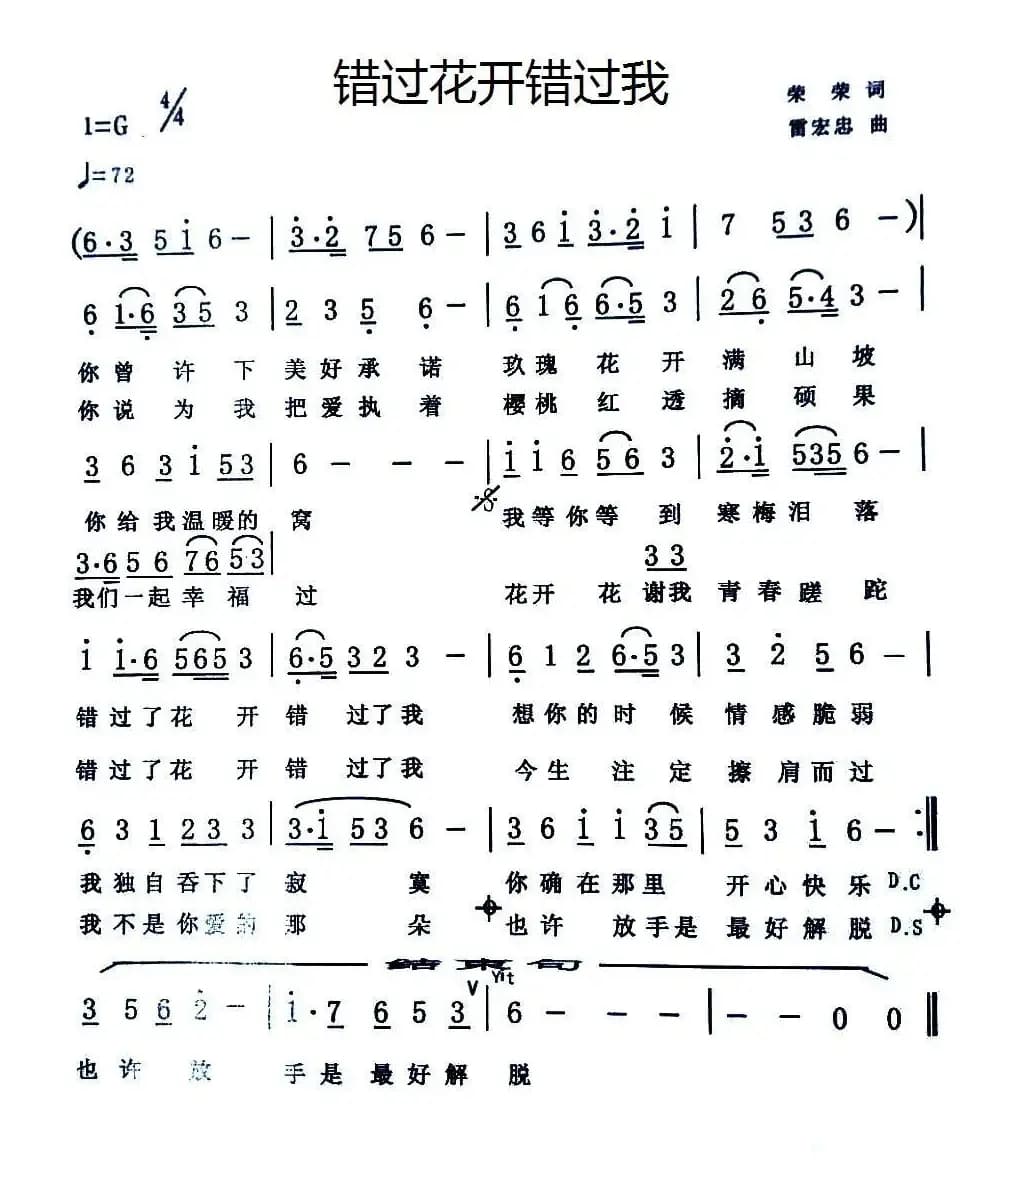 错过花开错过我
荣 荣 词
1=G 4/4
雷宏忠 曲
♩=72
(6·3 5i 6 - | 3·2 75 6 - | 3 6 i 3·2 i | 7 53 6 -)|
6 1·6 35 3 | 2 3 5 6 - | 6 1 6 6·5 3 | 26 5·4 3 - |
你曾许下美好承诺 玫瑰花开满山坡
你说为我把爱执着 樱桃红透摘硕果
3 6 3 i 53 | 6 - - - | i i 6 56 3 | 2·i 535 6 - |
你给我温暖的窝 我等你等到寒梅泪落
3·6 56 76 53 | 3 3
我们一起幸福过 花开花谢我青春蹉跎
i i·6 565 3 | 6·5 32 3 - | 6 1 2 6·5 3 | 3 2 5 6 - |
错过了花开错过了我 想你的时候情感脆弱
错过了花开错过了我 今生注定擦肩而过
6 3 1 23 3 | 3·i 53 6 - | 3 6 i i 35 | 5 3 i 6 - :‖
我独自吞下了寂寞 你确在那里开心快乐 D.C
我不是你爱的那朵 也许放手是最好解脱 D.S
结束句
Yit
3 5 6 2 - | i·7 6 5 3 | 6 - - - | - - 0 0 ‖
也许放手是最好解脱